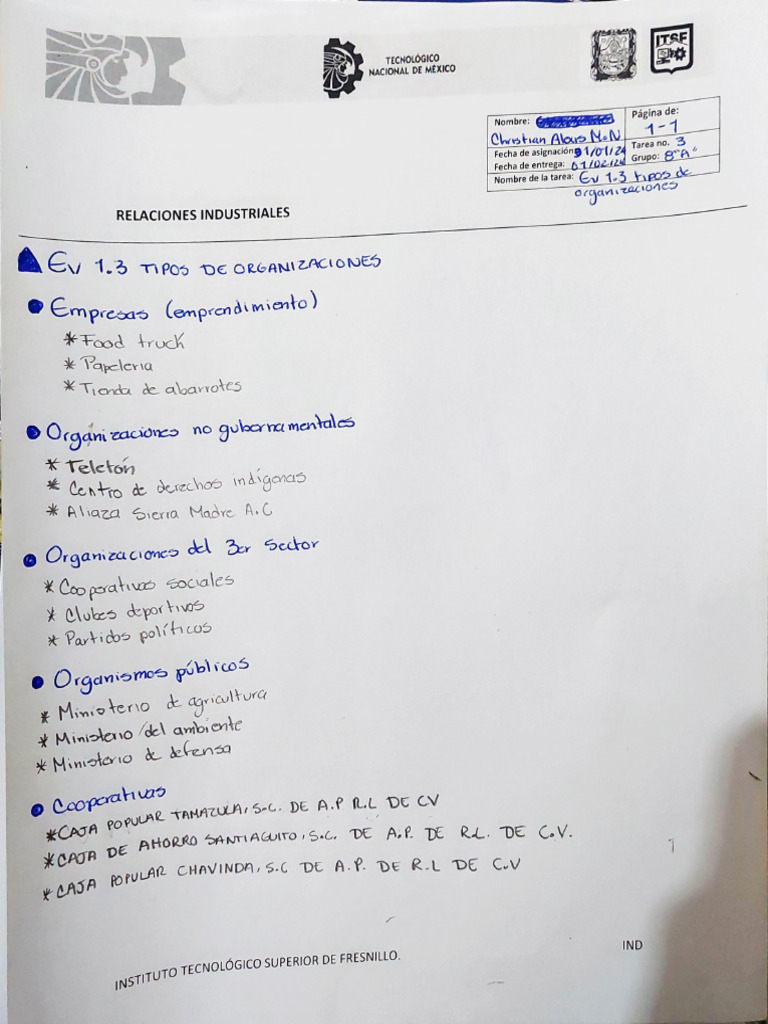 TECNOLÓGICO
NACIONAL DE MÉXICO
ITSF
Nombre:
Christian Alexis M.N
Página de:
1-1
Fecha de asignación 31/01/24
Tarea no. 3
Fecha de entrega: 01/02/24
Grupo: 8"A"
Nombre de la tarea: Ev 1.3 tipos de
organizaciones
RELACIONES INDUSTRIALES
Ev 1.3 TIPOS DE ORGANIZACIONES
Empresas (emprendimiento)
* Food truck
* Papeleria
* Tienda de abarrotes
Organizaciones no gubernamentales
* Teletón
* Centro de derechos indígenas
* Aliaza Sierra Madre A.C
Organizaciones del 3er Sector
* Cooperativas sociales
* Clubes deportivos
* Partidos políticos
Organismos públicos
* Ministerio de agricultura
* Ministerio del ambiente
* Ministerio de defensa
Cooperativas
* CAJA POPULAR TAMAZULA, S.C. DE A.P R.L DE CV
* CAJA DE AHORRO SANTIAGUITO, S.C. DE A.P. DE R.L. DE C.V.
* CAJA POPULAR CHAVINDA, S.C DE A.P. DE R.L DE C.V
IND
INSTITUTO TECNOLÓGICO SUPERIOR DE FRESNILLO.